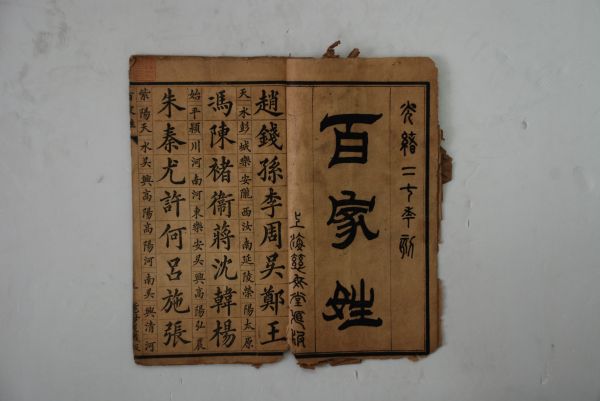 光緒二七年
百家姓
上海堂版
趙錢孫李周吳鄭王
天水彭城樂安隴西汝南延陵滎陽太原
馮陳褚衛蔣沈韓楊
始平潁川河南河東樂安吳興高陽弘農
朱秦尤許何呂施張
紫陽天水吳興高陽高陽河南吳興清河